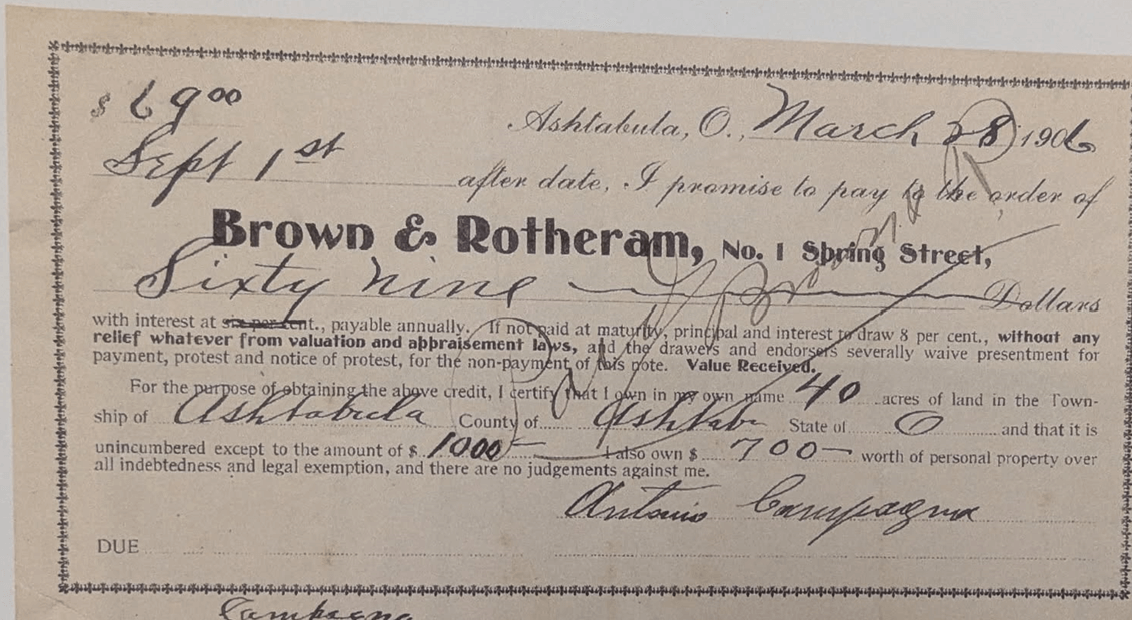 $ 69 00
Ashtabula, O., March 28 1906
Sept 1st after date, I promise to pay to the order of
Brown & Rotheram, No. 1 Spring Street,
Sixty nine Dollars
with interest at six per cent., payable annually. If not paid at maturity, principal and interest to draw 8 per cent., without any
relief whatever from valuation and appraisement laws, and the drawers and endorsers severally waive presentment for
payment, protest and notice of protest, for the non-payment of this note. Value Received.
For the purpose of obtaining the above credit, I certify that I own in my own name 40 acres of land in the Town-
ship of Ashtabula County of Ashtab State of O and that it is
unincumbered except to the amount of $ 1000 – I also own $ 700 – worth of personal property over
all indebtedness and legal exemption, and there are no judgements against me.
Antonio Campagna
DUE
Campagna